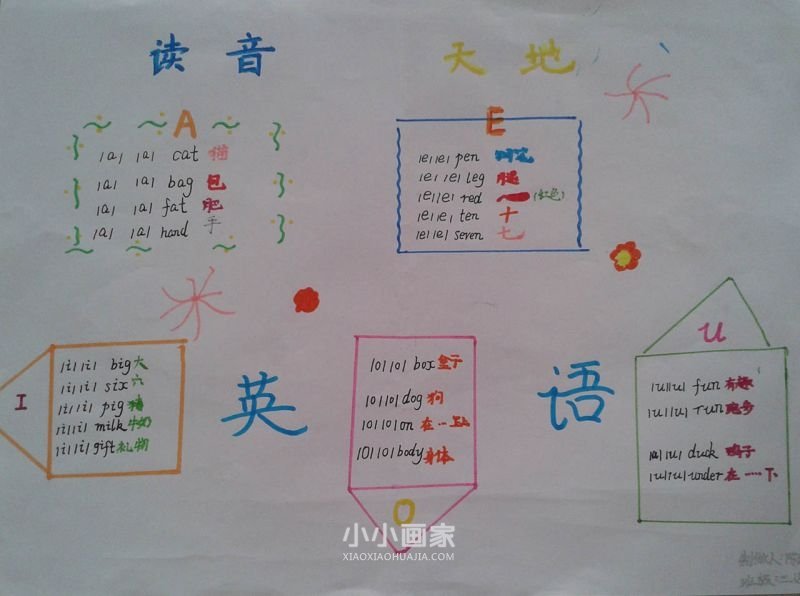 读音
天地
A
|a| |a| cat 猫
|a| |a| bag 包
|a| |a| fat 肥
|a| |a| hand 手
E
|e| |e| pen 钢笔
|e| |e| leg 腿
|e| |e| red (红色)
|e| |e| ten 十
|e| |e| seven 七
I
|i| |i| big 大
|i| |i| six 六
|i| |i| pig 猪
|i| |i| milk 牛奶
|i| |i| gift 礼物
英
|o| |o| box 盒子
|o| |o| dog 狗
|o| |o| on 在…上
|o| |o| body 身体
O
语
U
|u| |u| fun 有趣
|u| |u| run 跑步
|u| |u| duck 鸭子
|u| |u| under 在……下
小小画家
XIAOXIAOHUAJIA.COM